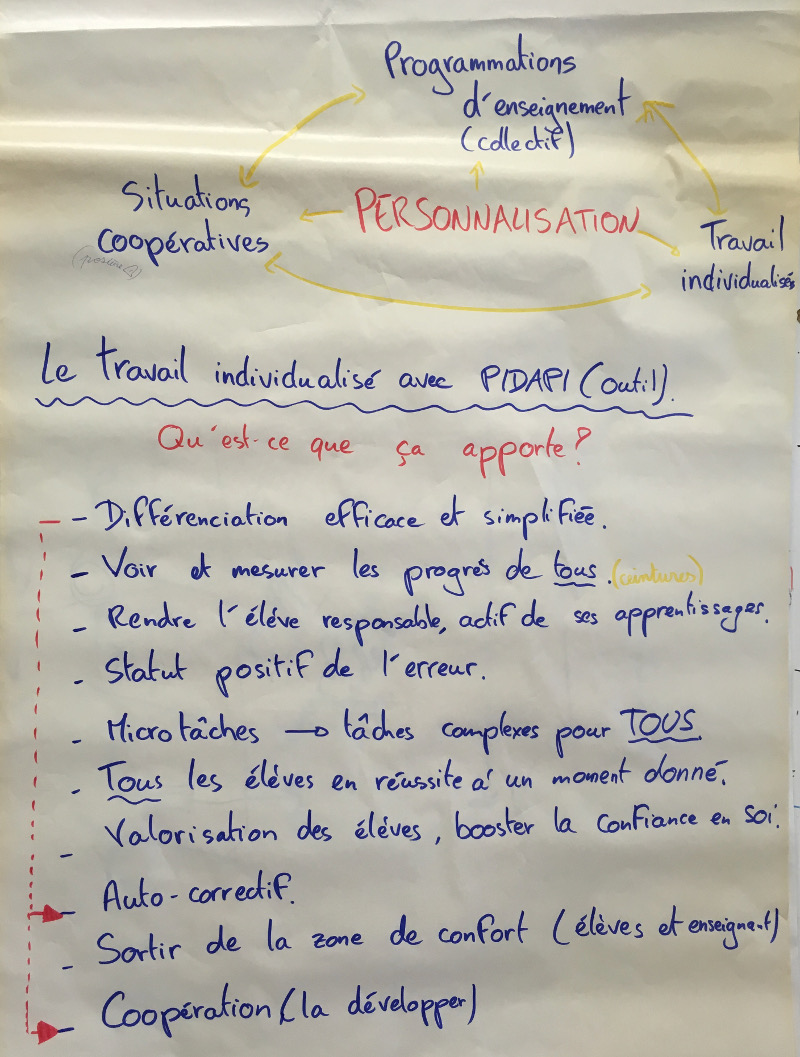 Programmations
d'enseignement
(collectif)
Situations
coopératives
PERSONNALISATION
Travail
individualisés
Le travail individualisé avec PIDAPI (outil).
Qu'est-ce que ça apporte?
- Différenciation efficace et simplifiée.
- Voir et mesurer les progrès de tous. (ceintures)
- Rendre l'élève responsable, actif de ses apprentissages.
- Statut positif de l'erreur.
- Micro tâches → tâches complexes pour TOUS
- Tous les élèves en réussite à un moment donné.
- Valorisation des élèves, booster la confiance en soi.
- Auto-correctif.
- Sortir de la zone de confort (élèves et enseignant)
- Coopération (la développer)